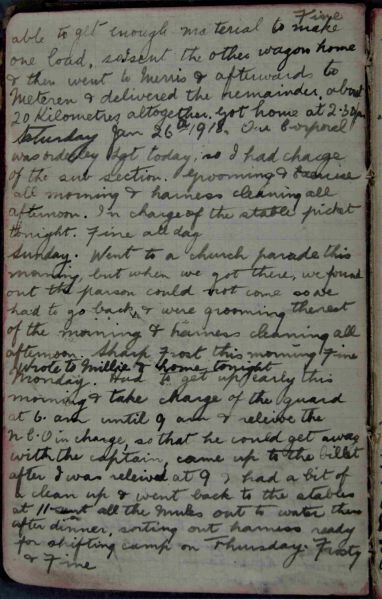 Fine
able to get enough material to make
one load, so sent the other wagon home
& then went to Merris & afterwards to
Meteren & delivered the remainder, about
20 Kilometres altogether. Got home at 2.30pm
Saturday Jan 26th 1918. Our Corporal
was orderley Sgt today, so I had charge
of the sub section. Grooming & Exercise
all morning & harness cleaning all
afternoon. In charge of the stable picket
tonight. Fine all day
Sunday. Went to a church parade this
morning, but when we got there, we found
out the parson could not come so we
had to go back, & were grooming the rest
of the morning & harness cleaning all
afternoon. Sharp Frost this morning Fine
Wrote to Millie & home tonight
Monday. Had to get up early this
morning & take charge of the guard
at 6 am until 9 am & releive the
N.C.O in charge, so that he could get away
with the captain, came up to the billet
after I was releived at 9, I had a bit of
a clean up & went back to the stables
at 11 sent all the mules out to water then
after dinner, sorting out harness ready
for shifting camp on Thursday. Frosty
& Fine